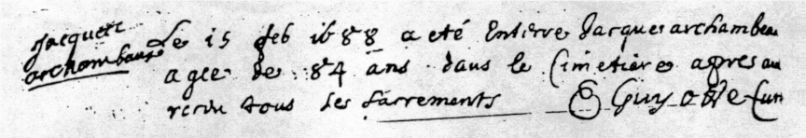 Jacques
archambaut
Le 15 feb 1688 a eté Enterre Jacques archambau
agee de 84 ans dans le Cimetiere apres au
recu tous les sacrements E Guyotte Cur